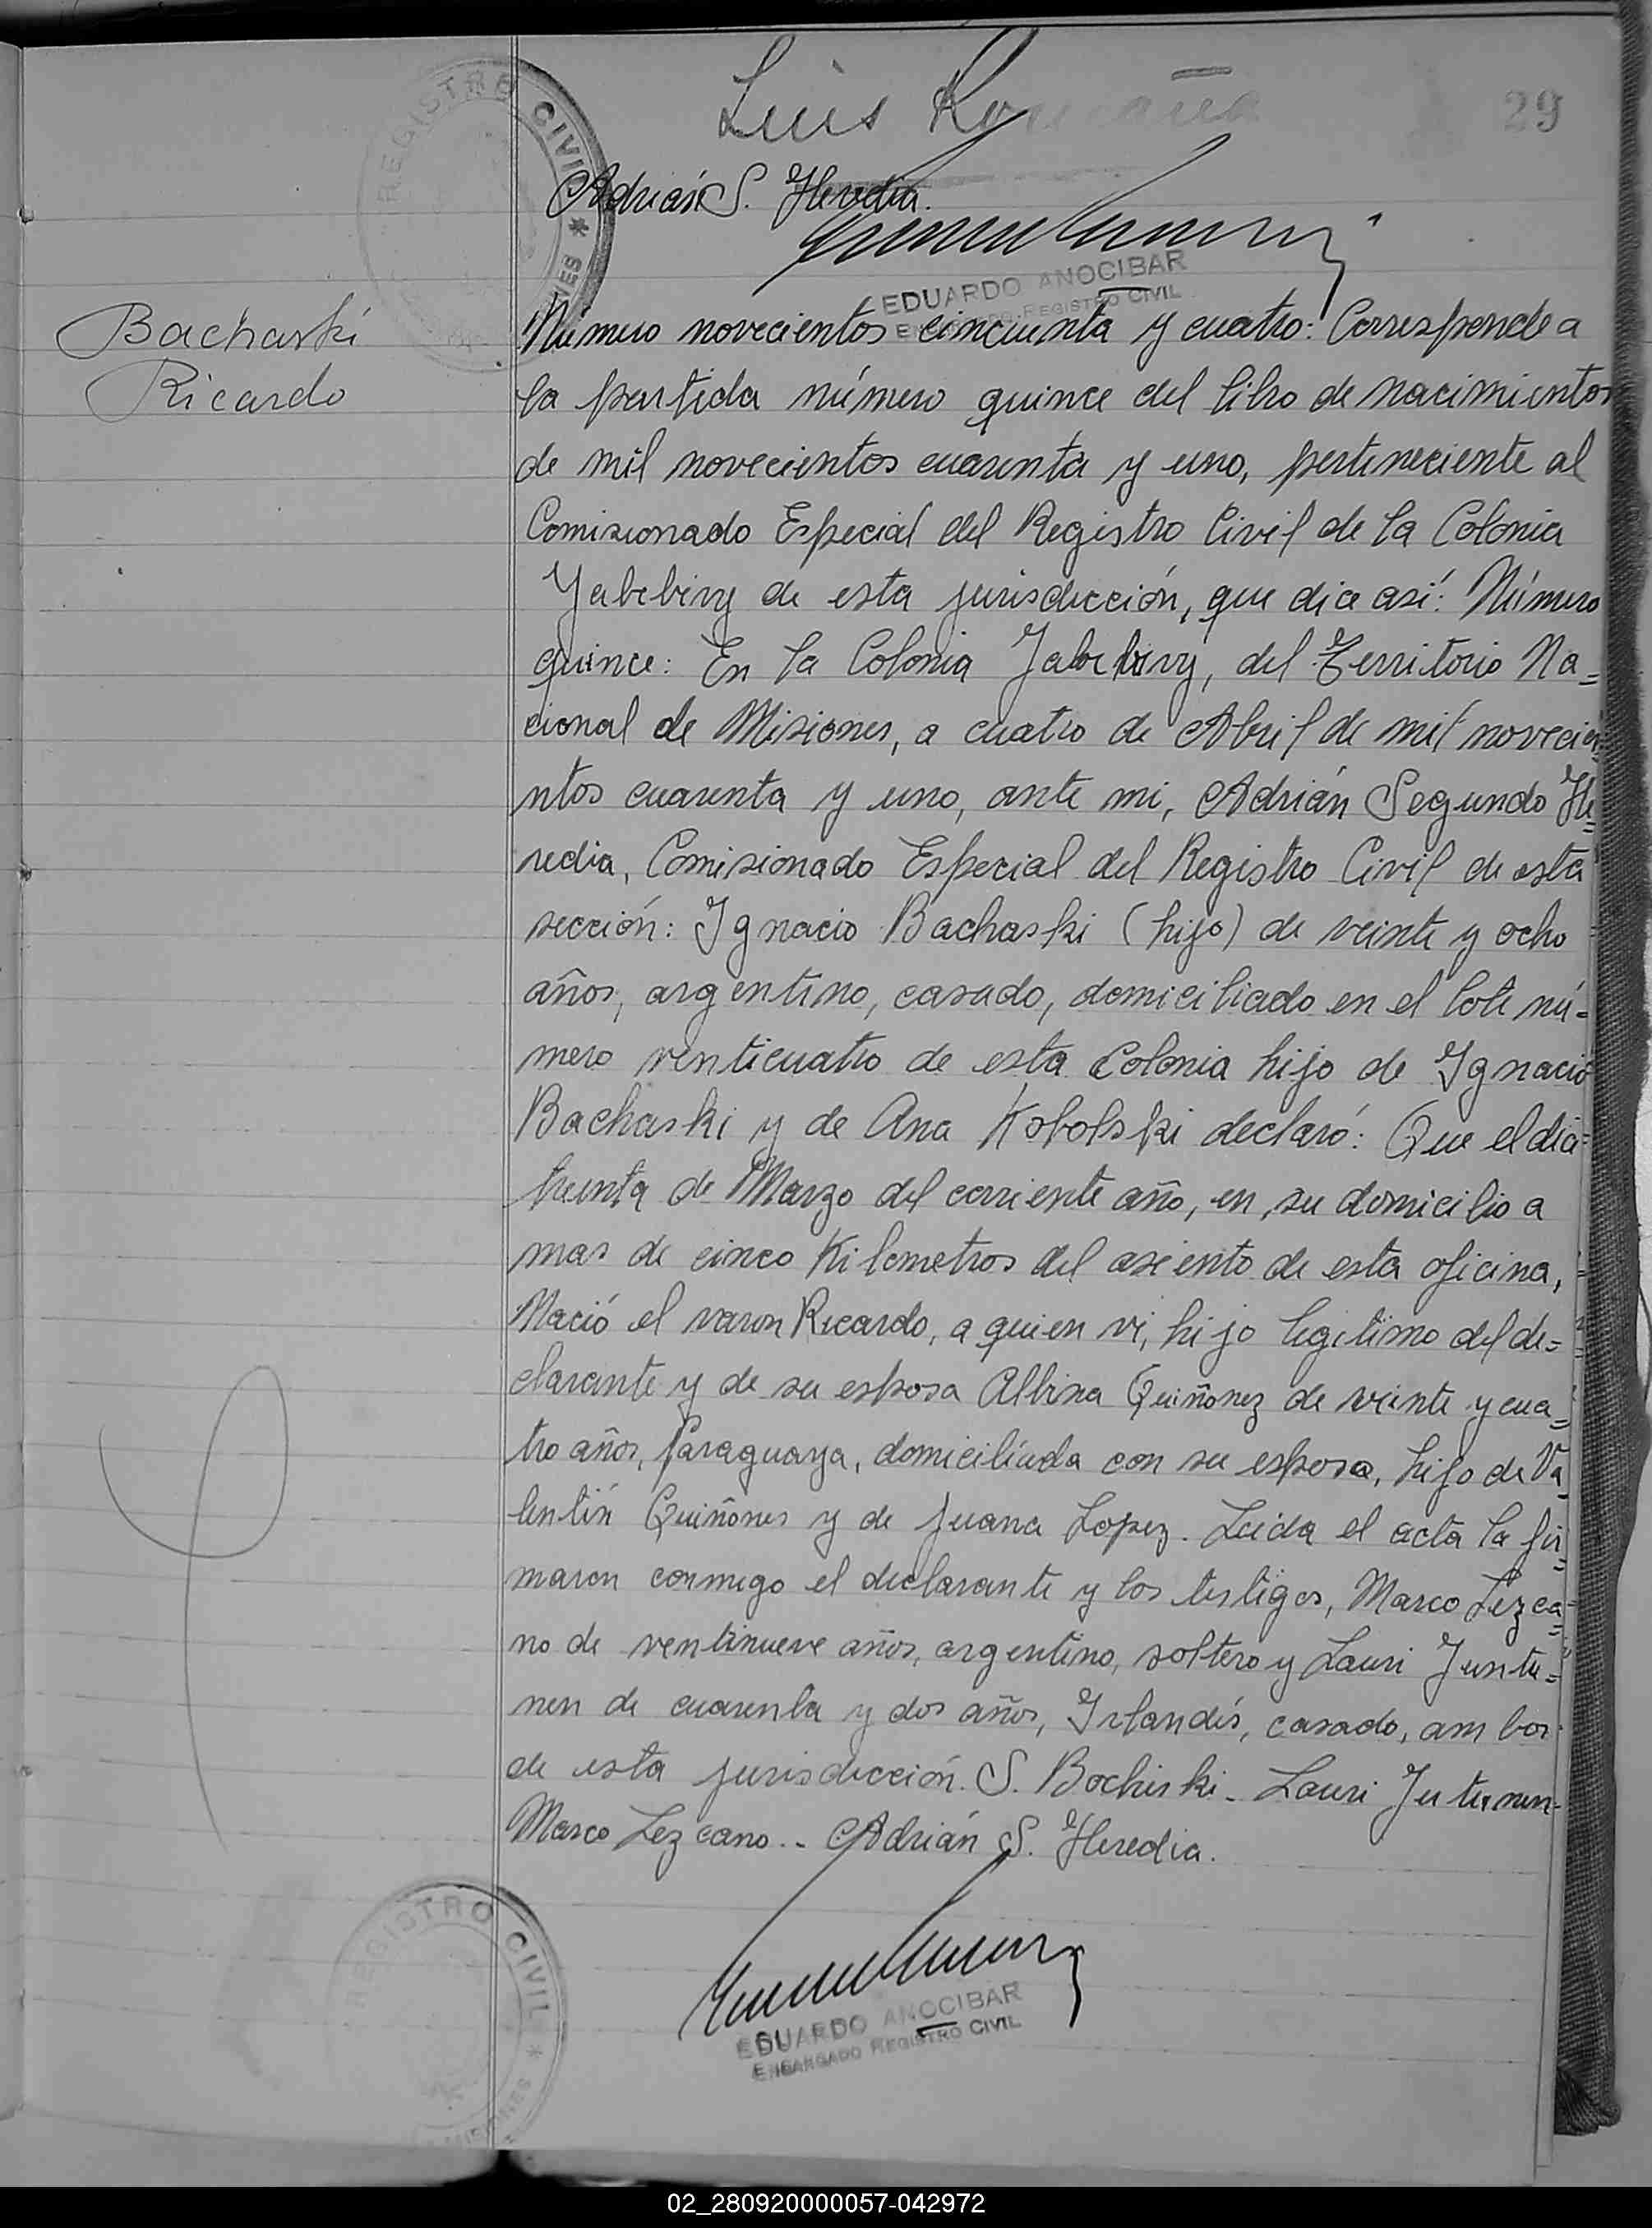 29
Luis Romaña
Adrián S. Heredia.
REGISTRO CIVIL *
EDUARDO ANOCIBAR
ENCARGADO REGISTRO CIVIL
Bachaski
Ricardo
Número novecientos cincuenta y cuatro: Corresponde a
la partida número quince del libro de nacimientos
de mil novecientos cuarenta y uno, perteneciente al
Comisionado Especial del Registro Civil de la Colonia
Yabebiry de esta jurisdicción, que dice así: Número
quince: En la Colonia Yabebiry, del Territorio Na=
cional de Misiones, a cuatro de Abril de mil novecien
ntos cuarenta y uno, ante mi, Adrián Segundo He=
redia, Comisionado Especial del Registro Civil de esta
sección: Ignacio Bachaski (hijo) de veinte y ocho
años, argentino, casado, domiciliado en el lote nú=
mero venticuatro de esta Colonia hijo de Ignacio
Bachaski y de Ana Kobolski declaró: Que el dia=
treinta de Marzo del corriente año, en su domicilio a
mas de cinco Kilometros del asiento de esta oficina,
Nació el varon Ricardo, a quien vi, hijo legitimo del de=
clarante y de su esposa Albina Quiñonez de veinte y cua=
tro años, Paraguaya, domiciliada con su esposo, hijo de Va
lentín Quiñones y de Juana Lopez. Leida el acta la fir=
maron conmigo el declarante y los testigos, Marco Lezca=
no de ventinueve años, argentino, soltero y Lauri Juntu=
nen de cuarenta y dos años, Irlandés, casado, ambos
de esta jurisdicción. S. Bochiski - Lauri Jutunen-
Marco Lezcano.- Adrián S. Heredia.
REGISTRO CIVIL *
EDUARDO ANOCIBAR
ENCARGADO REGISTRO CIVIL
02_280920000057-042972